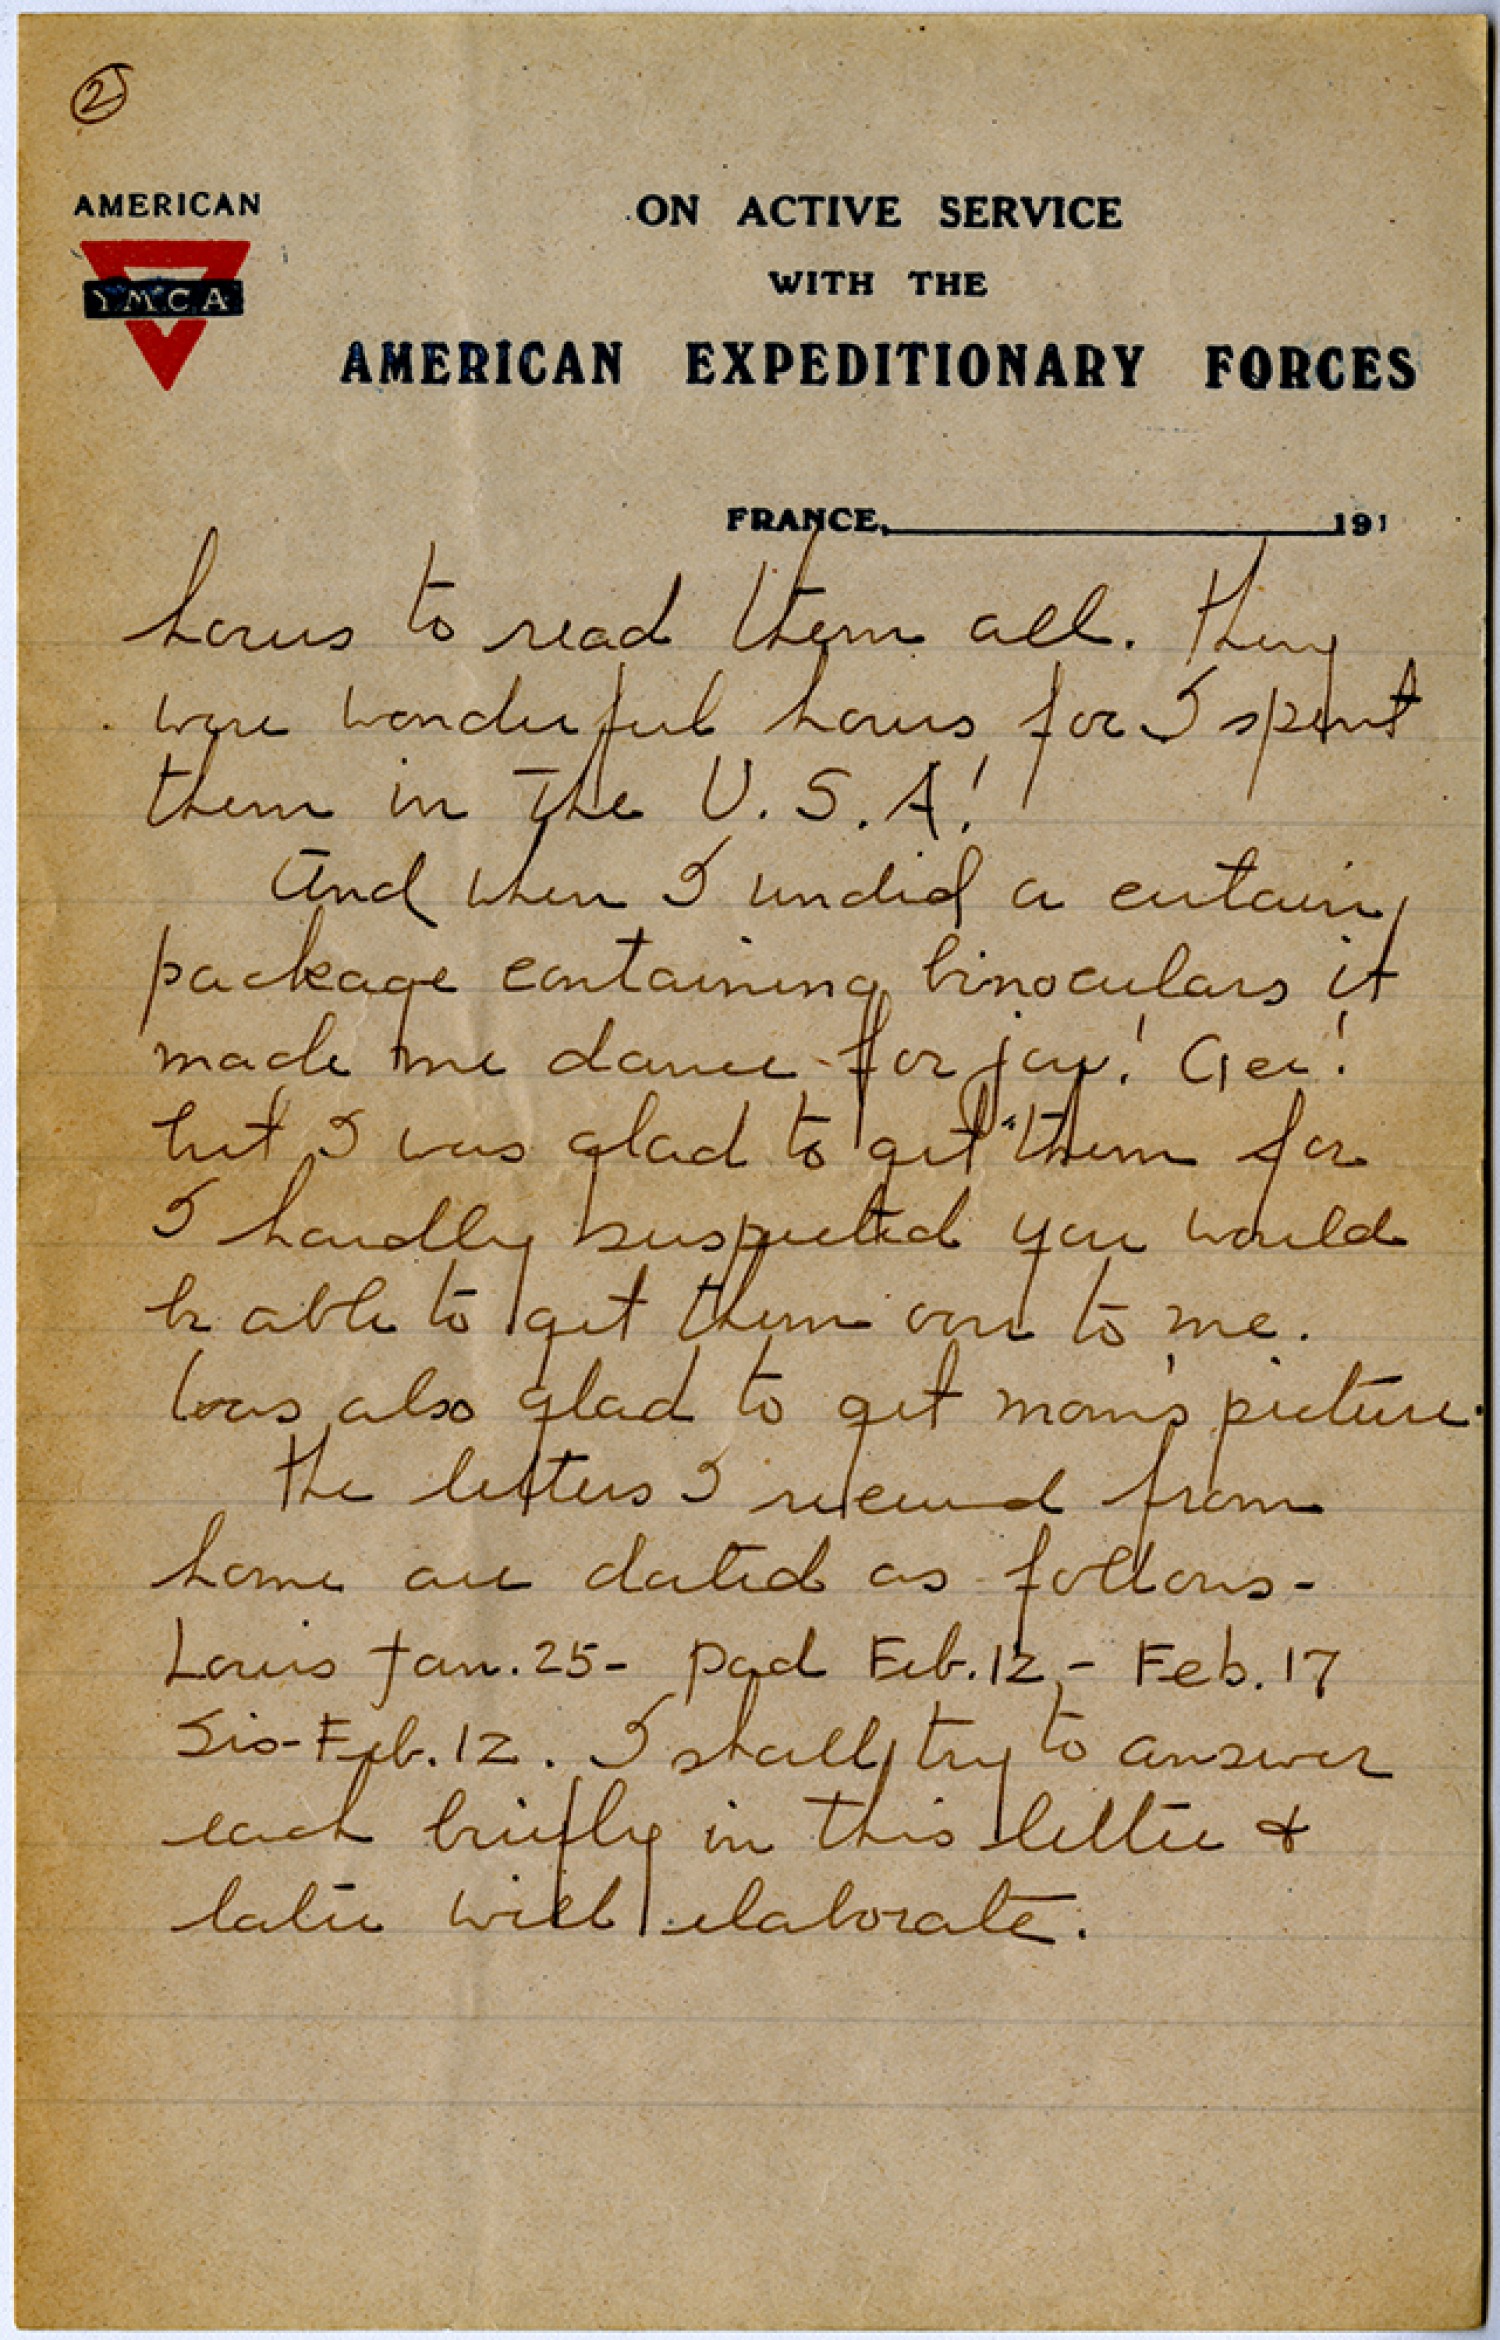 2
AMERICAN
Y.M.C.A
ON ACTIVE SERVICE
WITH THE
AMERICAN EXPEDITIONARY FORCES
FRANCE, 191
hours to read them all. They
were wonderful hours for I spent
them in the U.S.A!
And when I undid a certain
package containing binoculars it
made me dance for joy! Gee!
but I was glad to get them for
I hardly suspected you would
be able to get them over to me.
Was also glad to get mom's picture.
The letters I received from
home are dated as follows-
Louis Jan. 25- Dad Feb. 12,- Feb. 17
Sis-Feb. 12. I shall try to answer
each briefly in this letter &
later will elaborate.